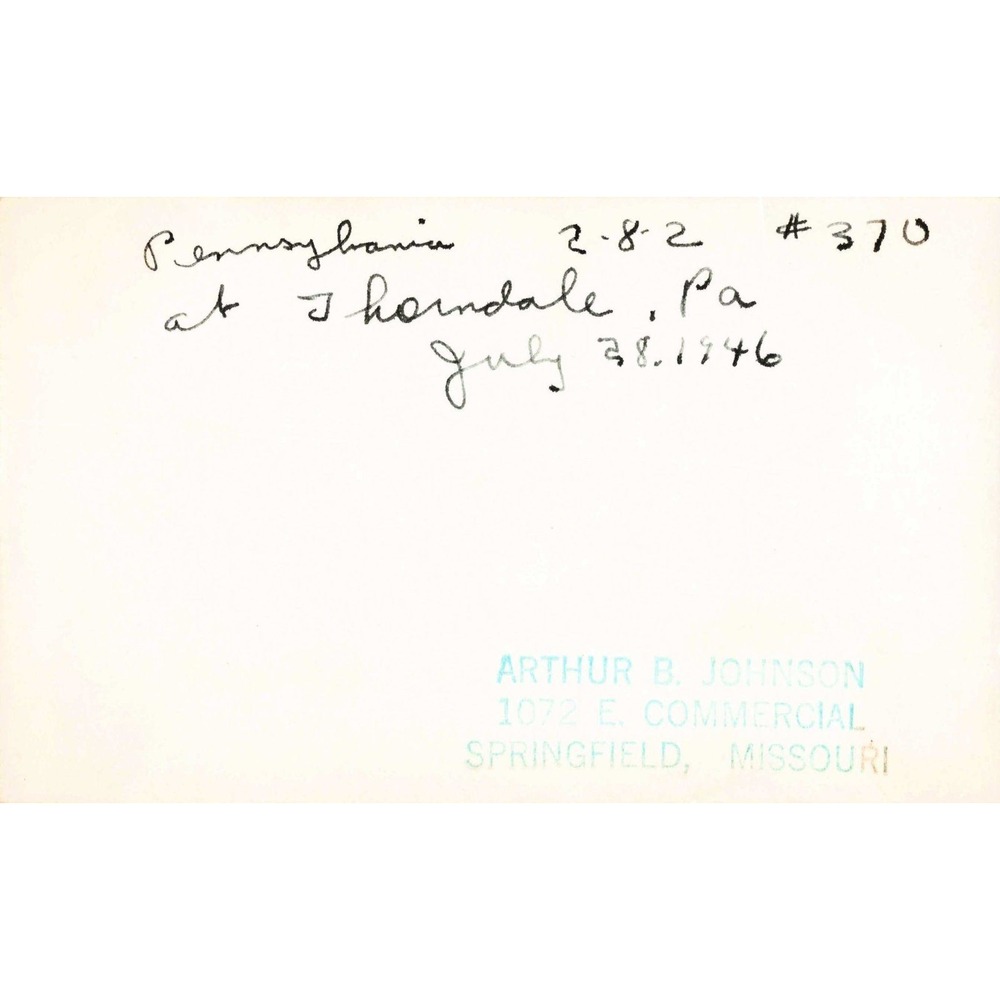 Pennsylvania 2-8-2 #370
at Thorndale, Pa
July 28.1946
ARTHUR B. JOHNSON
1072 E. COMMERCIAL
SPRINGFIELD, MISSOURI